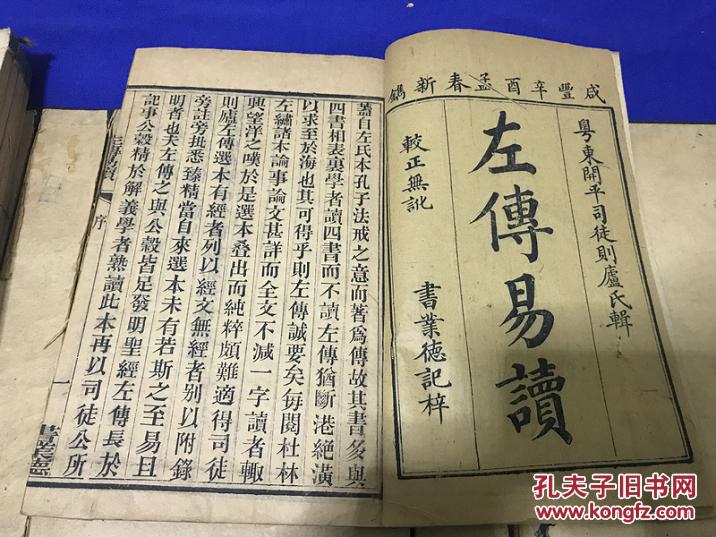 咸豐辛酉孟春新鐫
粵東開平司徒則廬氏輯
左傳易讀
較正無訛
書業德記梓
蓋自左氏本孔子法戒之意而著爲傳故其書多與
四書相表裏學者讀四書而不讀左傳猶斷港絕潢
以求至於海也其可得乎則左傳誠要矣每閱杜林
左繡諸本論事論文甚詳而全文不減一字讀者輒
興望洋之嘆於是選本叠出而純粹頗難適得司徒
則廬左傳選本有經者列以經文無經者别以附錄
旁註旁批悉臻精當自來選本未有若斯之至易且
明者也夫左傳之與公穀皆足發明聖經左傳長於
記事公穀精於解義學者熟讀此本再以司徒公所
左傳易讀
序
一
書業德
孔夫子旧书网
www.kongfz.com